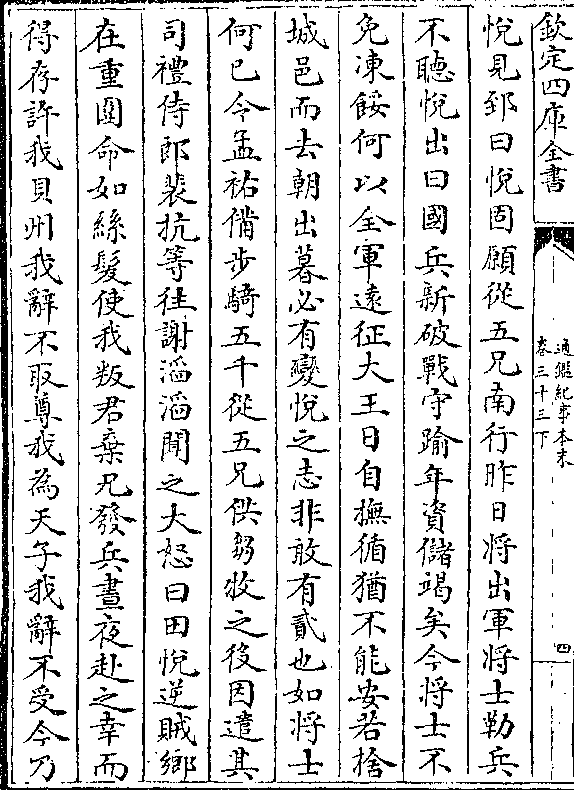 欽定四庫全書
通鑑紀事本末
卷三十三下
四
悅見郅曰悅固願從五兄南行昨日將出軍將士勒兵
不聽悅出曰國兵新破戰守踰年資儲竭矣今將士不
免凍餒何以全軍遠征大王日自撫循猶不能安若捨
城邑而去朝出暮必有變悅之志非敢有貳也如將士
何已令孟祐備步騎五千從五兄供芻牧之役因遣其
司禮侍郎裴抗等往謝滔滔聞之大怒曰田悅逆賊鄉
在重圍命如絲髮使我叛君棄兄發兵晝夜赴之幸而
得存許我貝州我辭不取尊我為天子我辭不受今乃